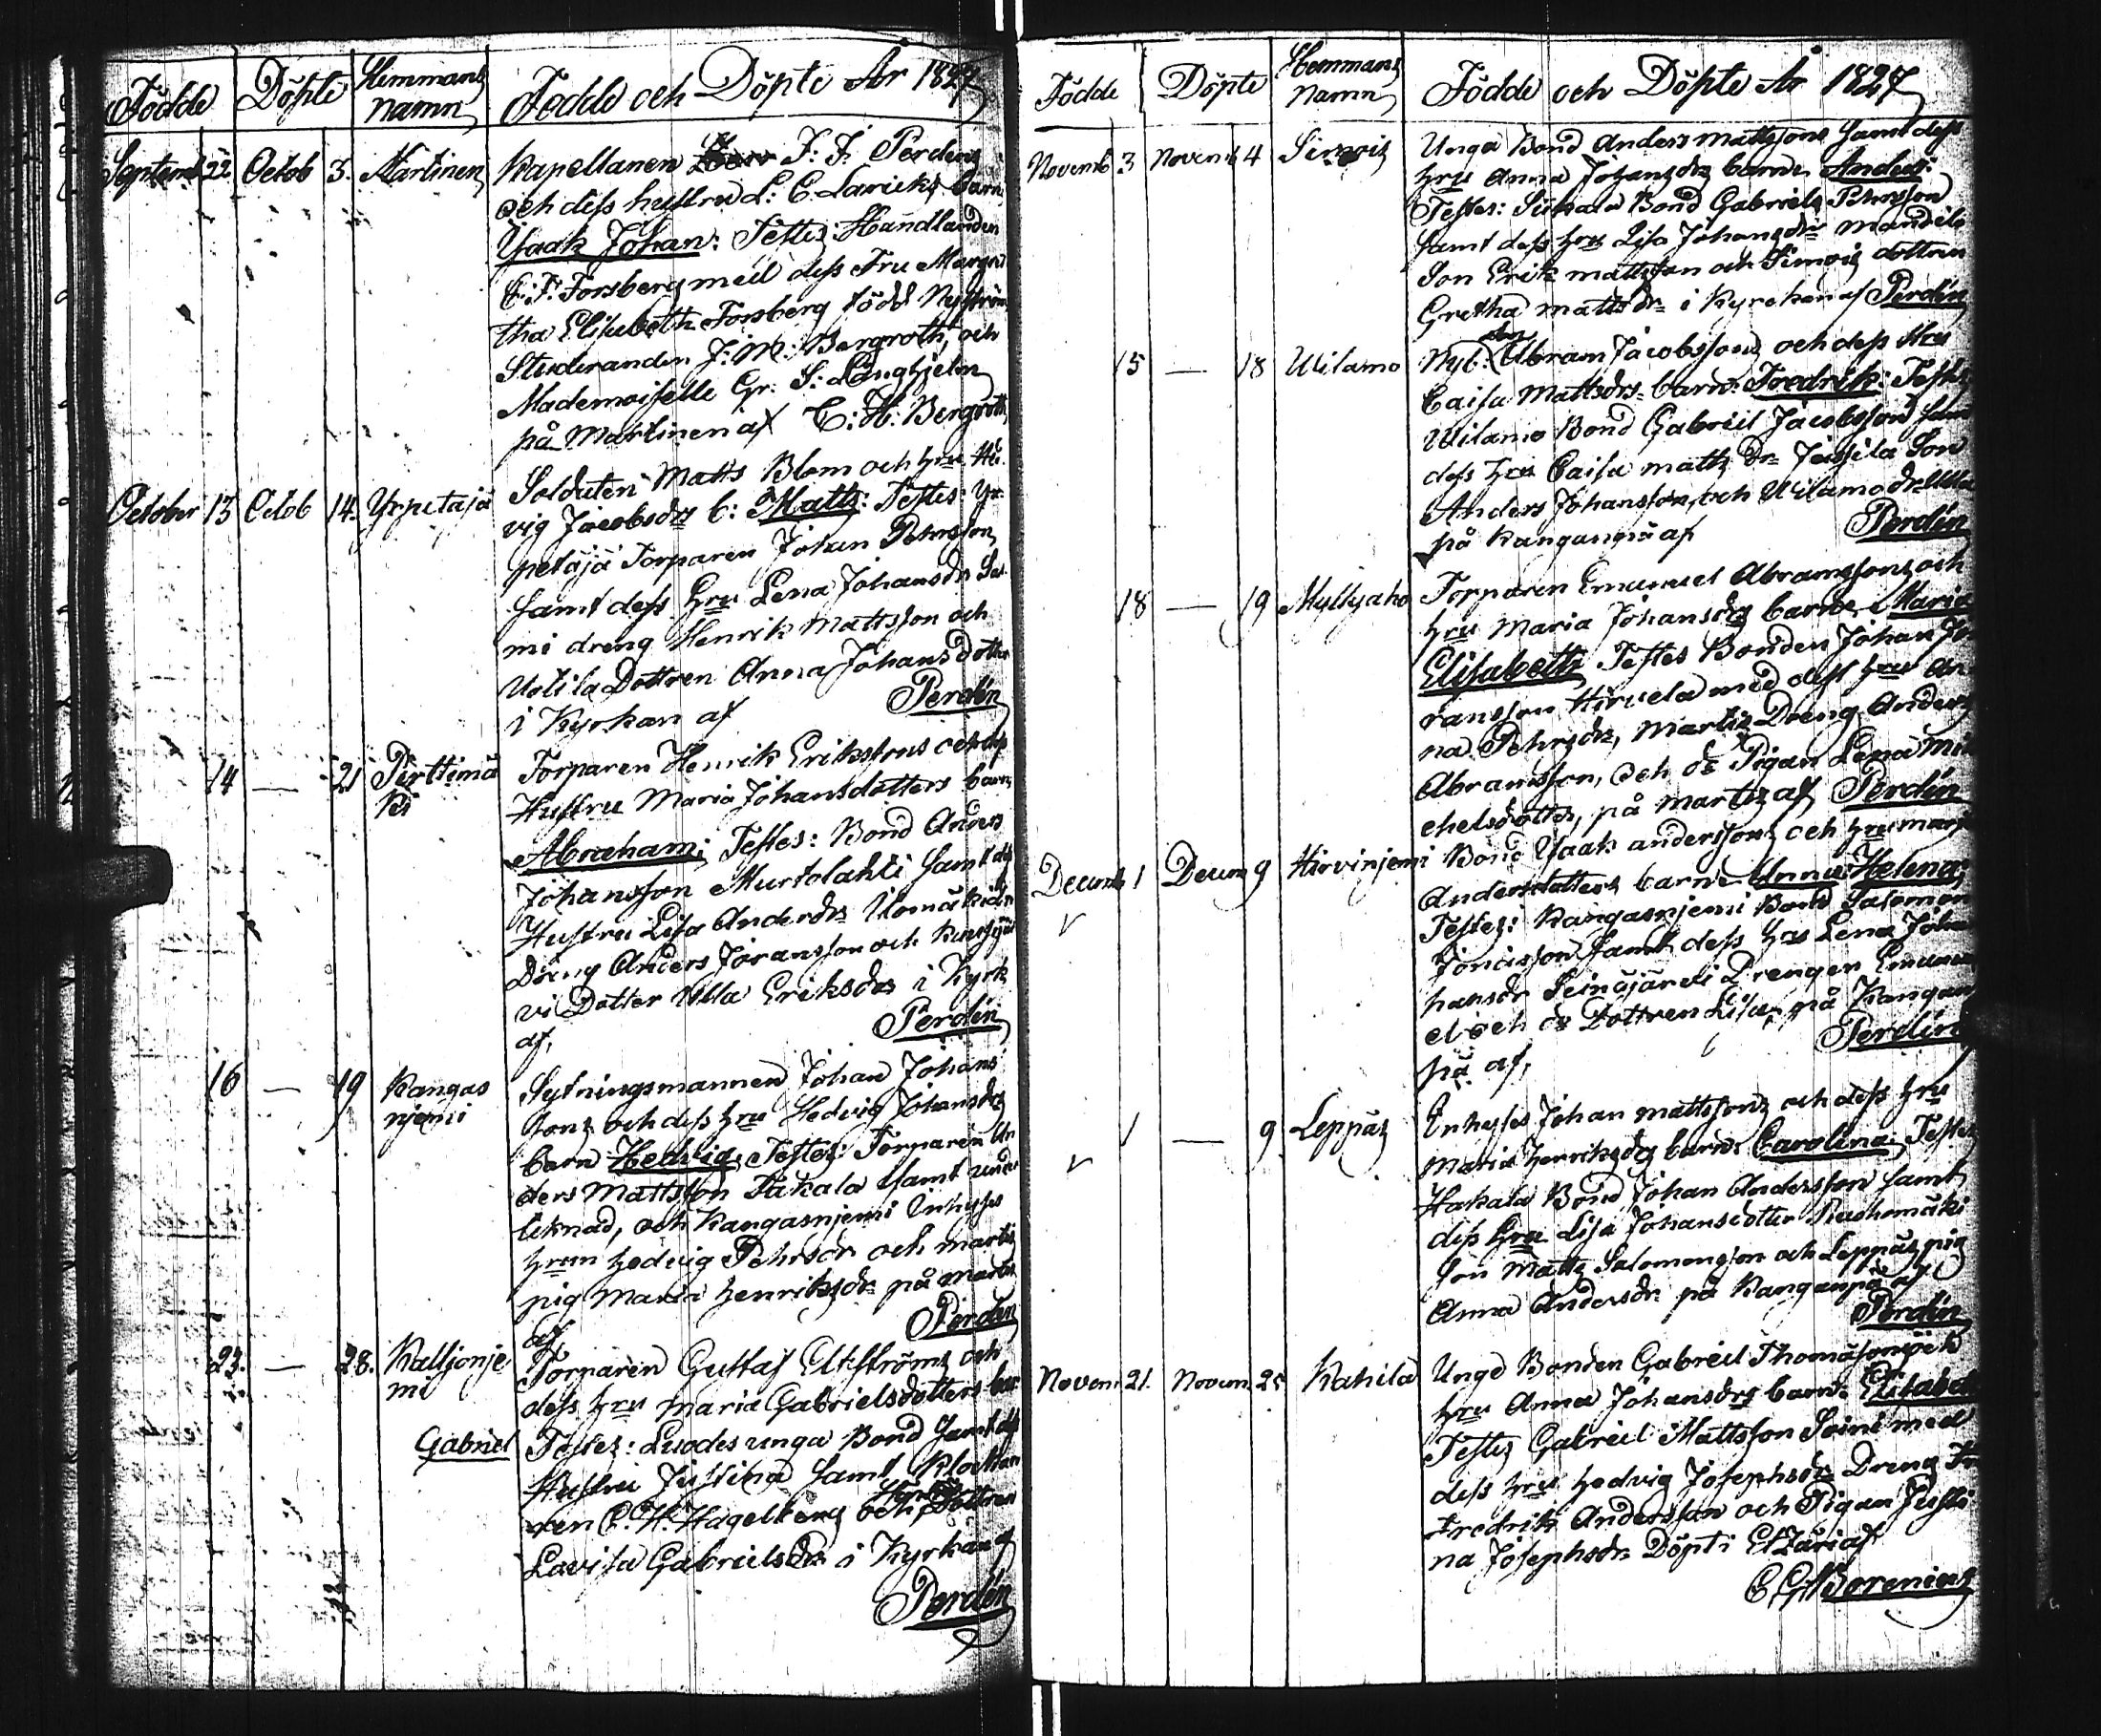 Födde Döpte Hemmans namn Födde och Döpte År 1827
Septemb 22. Octob 3. Martinen Kapellanen J: F: Perdens
och dess hustru L: C. Laricks barn
Isaak Johan: Testes: Handlanden
C: F: Forsberg med dess Fru Margre
tha Elisabeth Forsberg född Nyström
Studeranden J: M: Bergroth, och
Mademoiselle Gr: S: Longhjelm
på Martinen af C: H: Bergroth
October 13 Octob 14. Yrpetäjä Soldaten Matts Blom och hru He
vig Jacobsdrs b: Matts: Testes: Yr
petäjä Torparen Johan Pehrsson
samt dess hru Lena Johansdr Sal
mi dreng Henrik Mattsson och
Uotila Dottren Anna Johansdotter
i Kyrkan af Perdén
14 — 21 Perttimä Torparen Henrik Erikssons och dess
ki Hustru Maria Johansdotters barn
Abraham; Testes: Bond Anders
Johansson Murtolahti samt dess
Hustru Lisa Andersdr
Dreng Anders Göransson och
vi Dotter Ulla Eriksdr i Kyrk
af, Perdén
16 — 19 Kangas Sytningsmannen Johan Johans
njemi sons och dess hru Hedvig Johansdrs
barn Hedvig, Testes: Torparen An
ders Mattsson Takala samt under
teknad, och Kangasnjemi Inhyses
hrun Hedvig Pehrsdr och Martis
pig Maria Henriksdr på Martis
af Perdén
23. — 28. Kalljonje Torparen Gustaf Elfströms och
mi dess hru Maria Gabrielsdotters bar
Gabriel Testes: Luodes unga Bond samt dess
Hustru Justina samt Klockan
ren C. H. Hagelberg och Dottren
Lovisa Gabrielsdr i Kyrkan af
Perdén
Födde Döpte Hemmans Namn Födde och Döpte År 1827
Novemb 3 Novemb 4 Unga Bond Anders Mattssons samt dess
hrus Anna Johansdrs barn: Anders:
Testes: Bond Gabriels Pehrsson
samt dess hru Lisa Johansdr Mandila
Son Erik Mattsson och dottren
Gretha Mattsdr i Kyrckan af Perdén
15 — 18 Uilamo Nyb: Abram Jacobssons och dess Hru
Caisa Mattsdrs barn: Fredrik: Testes
Uilamo Bond Gabriel Jacobsson samt
dess hru Caisa Mattsdr Jussila Son
Anders Johansson, och Uilamo dr Ulla
på Kanganpä af Perdén
18 — 19 Myllyaho Torparen Emanuel Abramssons och
hru Maria Johansdrs barn Maria
Elisabeth Testes Bonden Johan Jö
ransson Hirvela med dess hru An
na Pehrsdr, Martis Dreng Anders
Abramsson, och ds Pigan Lena Mi
chelsdotter, på Martis af Perdén
Decemb 1 Decem 9 Hirvinjemi Bond Isaak Anderssons och hru Marg
Andersdotters barn Anna Helena,
Testes: Kangasnjemi Bond Salomon
Jonasson samt dess hru Lena Joha
hansdr Seinäjärvi Drengen Emanu
el och ds Dottren Lisa, på Kangan
pä af, Perdén
1 — 9 Leppäs Inhyses Johan Mattssons och dess hru
Maria Henriksdrs barn: Carolina; Testes
Hakala Bond Johan Andersson samt
dess hru Lisa Johansdotter
Son Matts Salomonsson och Leppäs pig
Anna Andersdr på Kanganpä af
Perdén
Novem 21. Novem 25 Kahila Unge Bonden Gabriel Thomassons och
hru Anna Johansdrs barn: Elisabet
Testes Gabriel Mattsson Soini med
dess hru Hedvig Josephsdr Dreng Fr
Fredrik Andersson och Pigan Justi
na Josephsdr Döpt i Etzäri af
C. G. Borenius